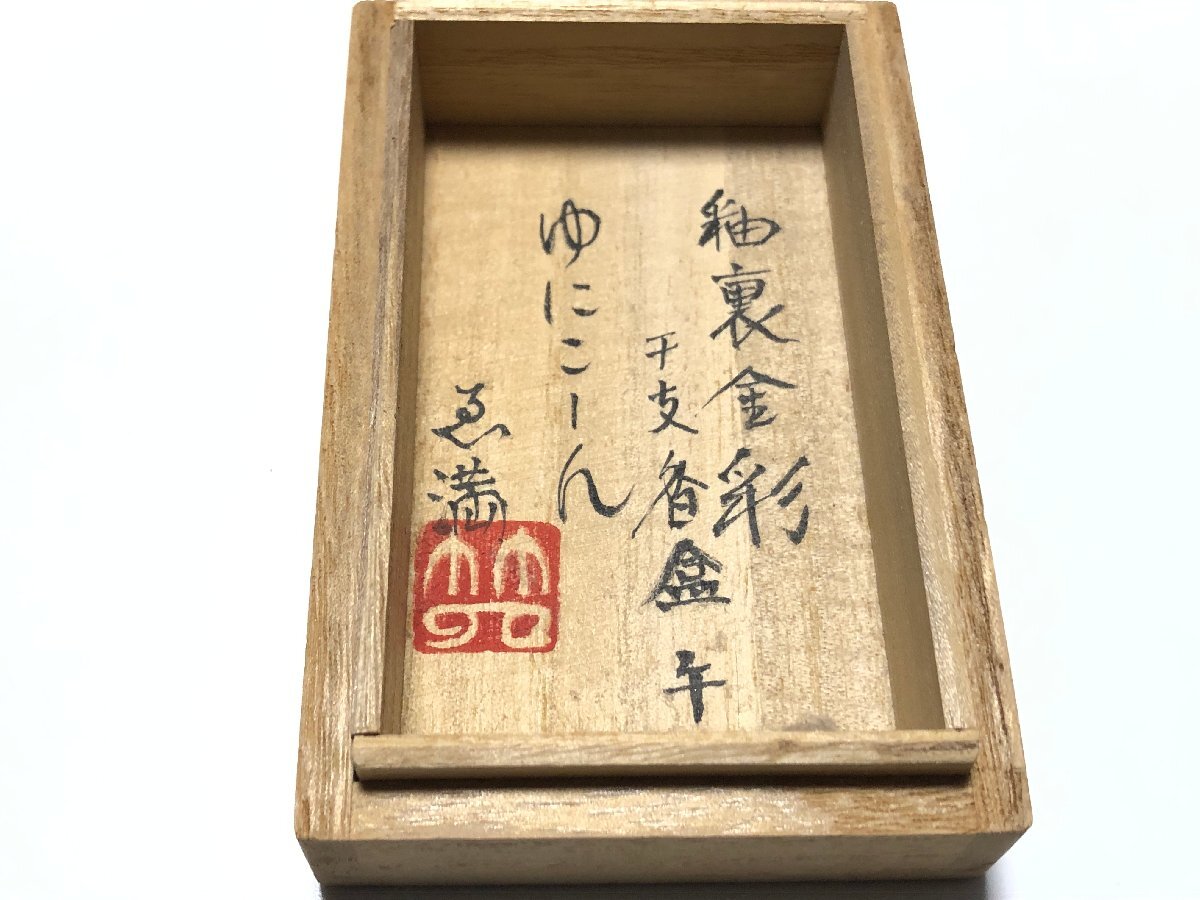 釉裏金彩
干支香盒 午
ゆにこーん
ゑ満